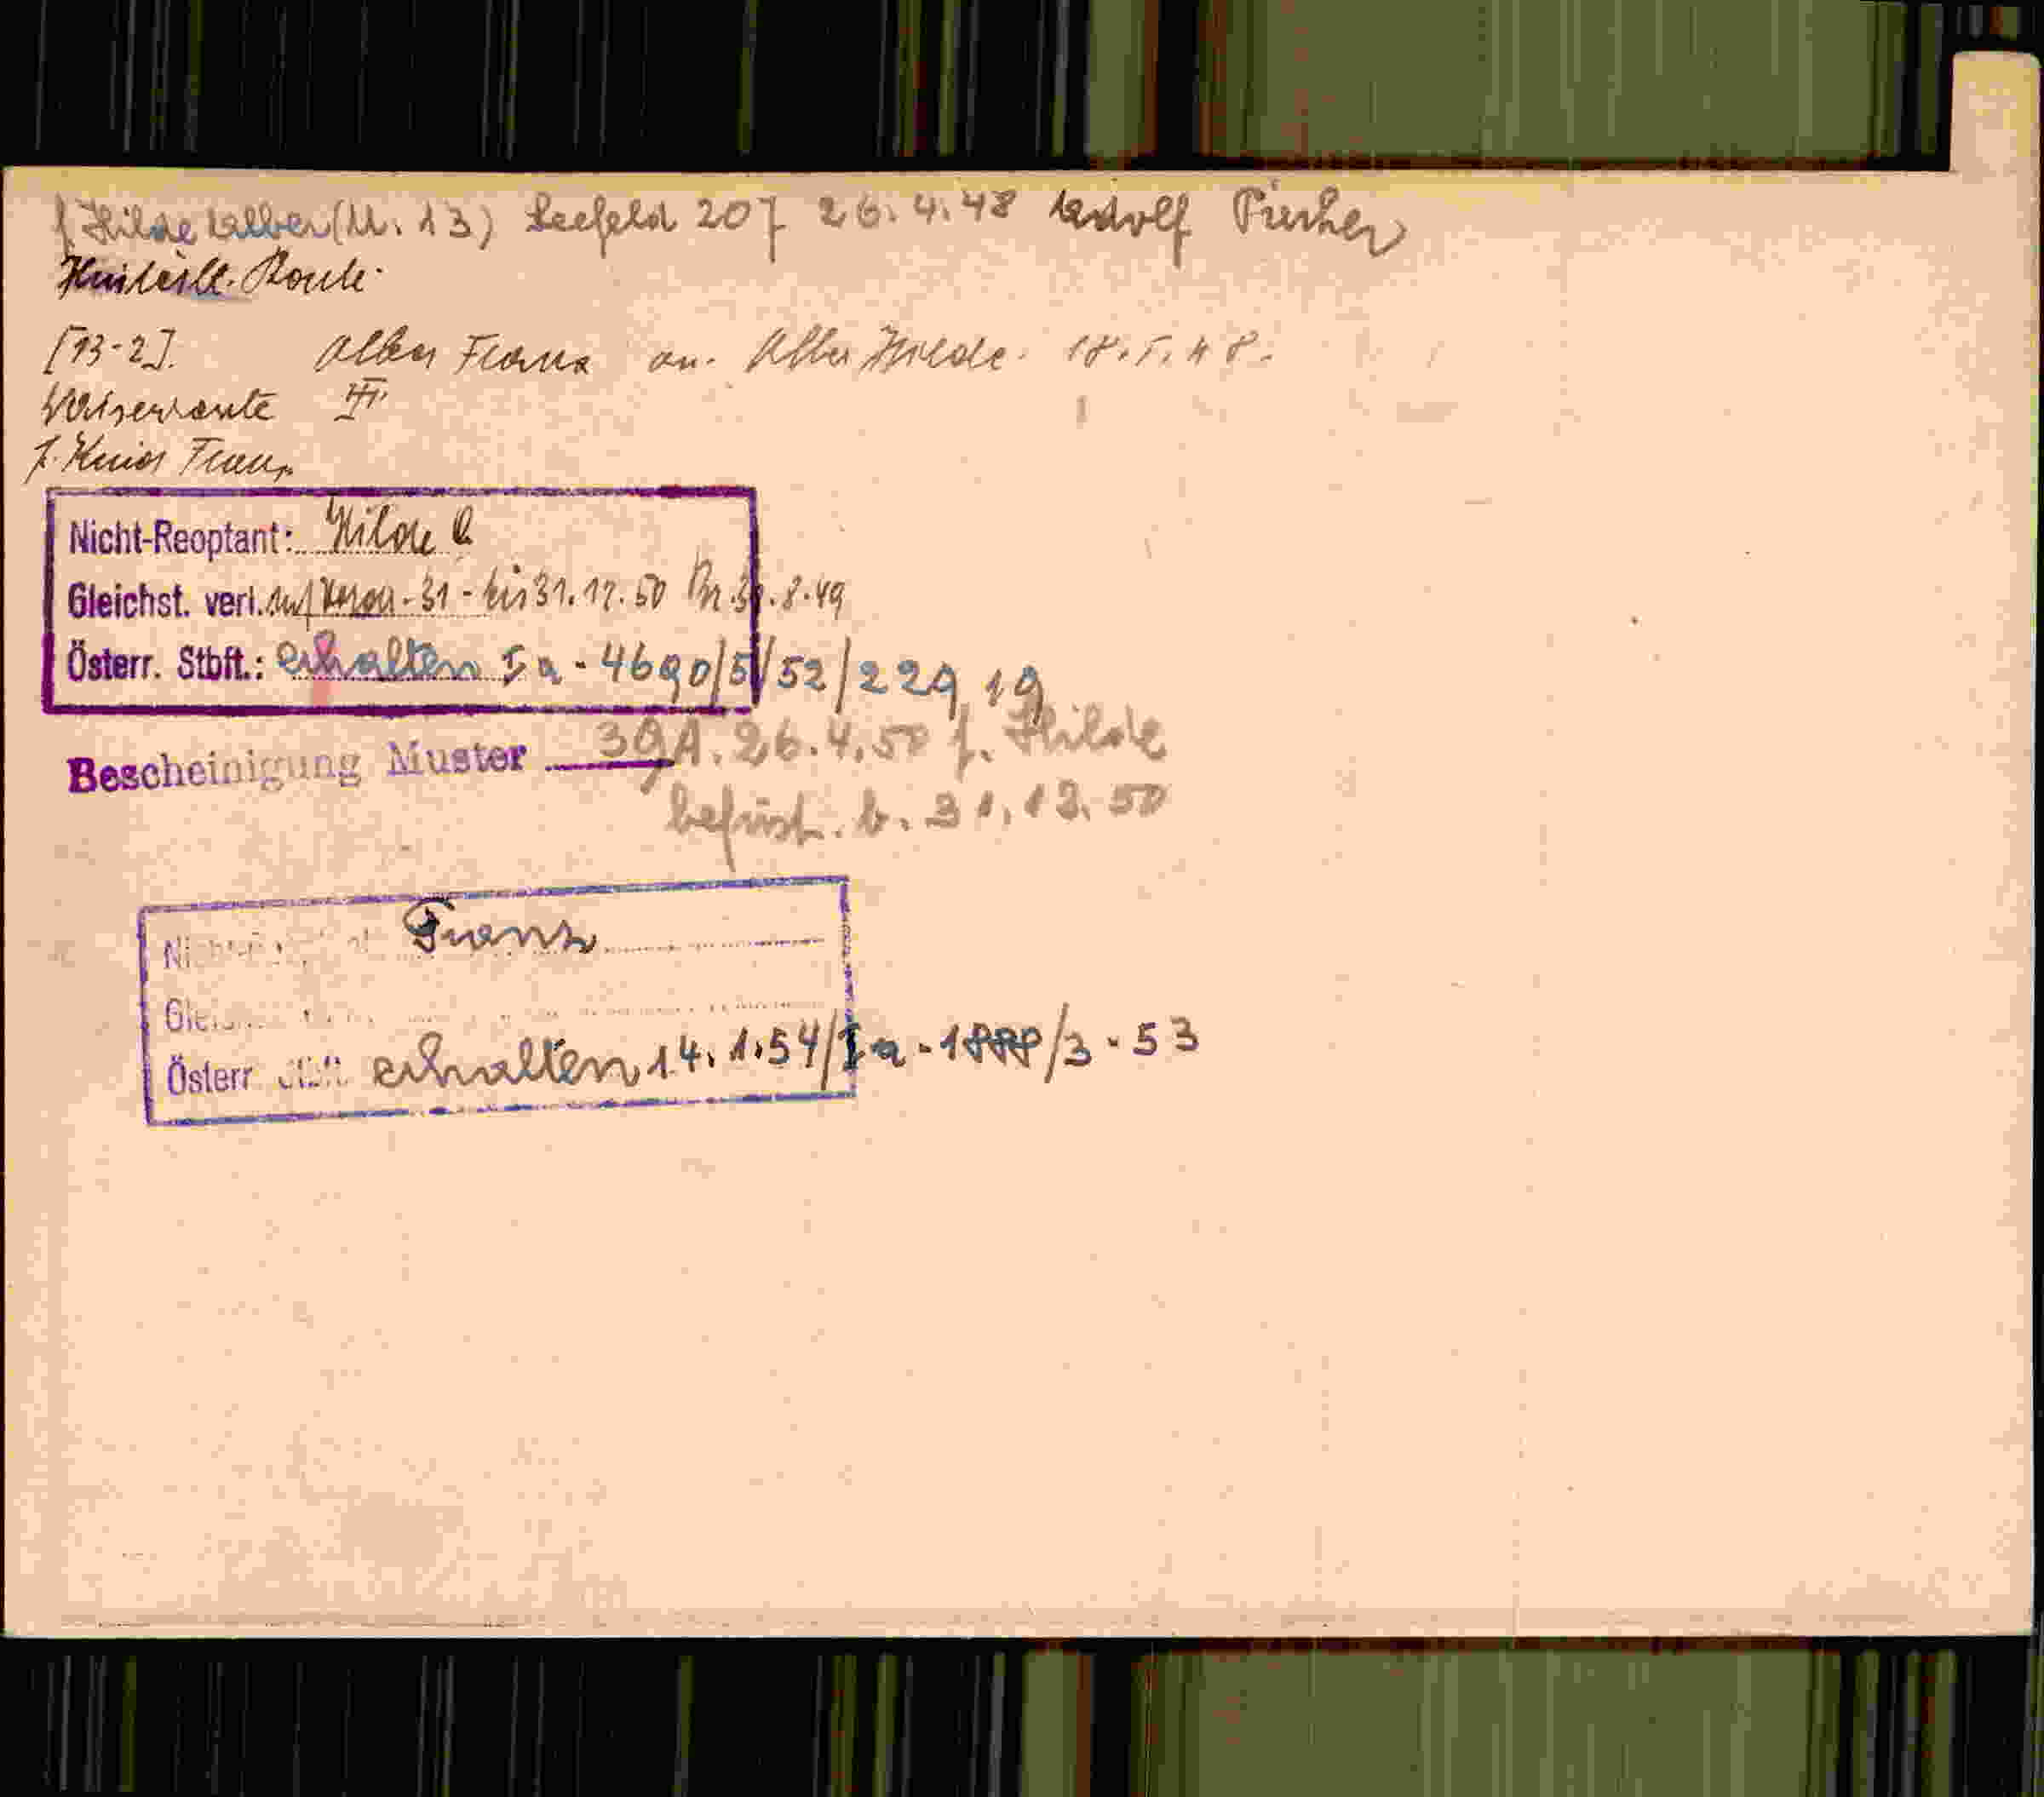 f. Hilde Alber (M. 13) Seefeld 207 26.4.48 Adolf
Hinterbl. Rente
[13-2]. Alber Franz an. Alber Hilde. 18.5.48.
Waisenrente III
f. Kind Franz
Nicht-Reoptant: Hilde A
Gleichst. verl. auf 31 - bis 31.12.50 31.8.49
Österr. Stbft.: erhalten Ia - 4690/5/52/229 19
Bescheinigung Muster 39A. 26.4.50 f. Hilde
befrist. b. 31.12.50
Franz
Österr erhalten 14.1.54/Ia - 1888/3 - 53